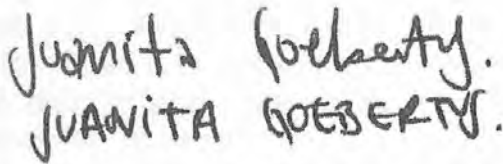 Juanita Goebertus.
JUANITA GOEBERTUS.